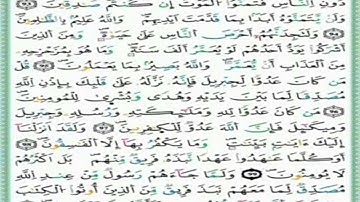 دُونِ ٱلنَّاسِ فَتَمَنَّوُا۟ ٱلْمَوْتَ إِن كُنتُمْ صَٰدِقِينَ ٩٤
وَلَن يَتَمَنَّوْهُ أَبَدًۢا بِمَا قَدَّمَتْ أَيْدِيهِمْ ۗ وَٱللَّهُ عَلِيمٌۢ بِٱلظَّٰلِمِينَ
٩٥ وَلَتَجِدَنَّهُمْ أَحْرَصَ ٱلنَّاسِ عَلَىٰ حَيَوٰةٍ وَمِنَ ٱلَّذِينَ
أَشْرَكُوا۟ ۚ يَوَدُّ أَحَدُهُمْ لَوْ يُعَمَّرُ أَلْفَ سَنَةٍ وَمَا هُوَ بِمُزَحْزِحِهِۦ
مِنَ ٱلْعَذَابِ أَن يُعَمَّرَ ۗ وَٱللَّهُ بَصِيرٌۢ بِمَا يَعْمَلُونَ ٩٦ قُلْ
مَن كَانَ عَدُوًّا لِّجِبْرِيلَ فَإِنَّهُۥ نَزَّلَهُۥ عَلَىٰ قَلْبِكَ بِإِذْنِ ٱللَّهِ
مُصَدِّقًا لِّمَا بَيْنَ يَدَيْهِ وَهُدًى وَبُشْرَىٰ لِلْمُؤْمِنِينَ ٩٧
مَن كَانَ عَدُوًّا لِّلَّهِ وَمَلَٰٓئِكَتِهِۦ وَرُسُلِهِۦ وَجِبْرِيلَ
وَمِيكَىٰلَ فَإِنَّ ٱللَّهَ عَدُوٌّ لِّلْكَٰفِرِينَ ٩٨ وَلَقَدْ أَنزَلْنَآ
إِلَيْكَ ءَايَٰتٍۭ بَيِّنَٰتٍ ۖ وَمَا يَكْفُرُ بِهَآ إِلَّا ٱلْفَٰسِقُونَ ٩٩
أَوَكُلَّمَا عَٰهَدُوا۟ عَهْدًا نَّبَذَهُۥ فَرِيقٌ مِّنْهُم ۚ بَلْ أَكْثَرُهُمْ
لَا يُؤْمِنُونَ ١٠٠ وَلَمَّا جَآءَهُمْ رَسُولٌ مِّنْ عِندِ ٱللَّهِ
مُصَدِّقٌ لِّمَا مَعَهُمْ نَبَذَ فَرِيقٌ مِّنَ ٱلَّذِينَ أُوتُوا۟ ٱلْكِتَٰبَ